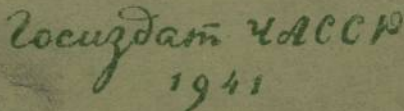 Госиздат ЧАССР
1941